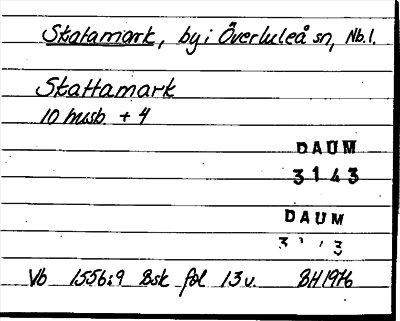 Skatamark, by i Överluleå sn, Nb.l.
Skattamark
10 husb. + 4
DAUM
3143
DAUM
Vb 1556:9 Bsk fol 13v. BH 1976